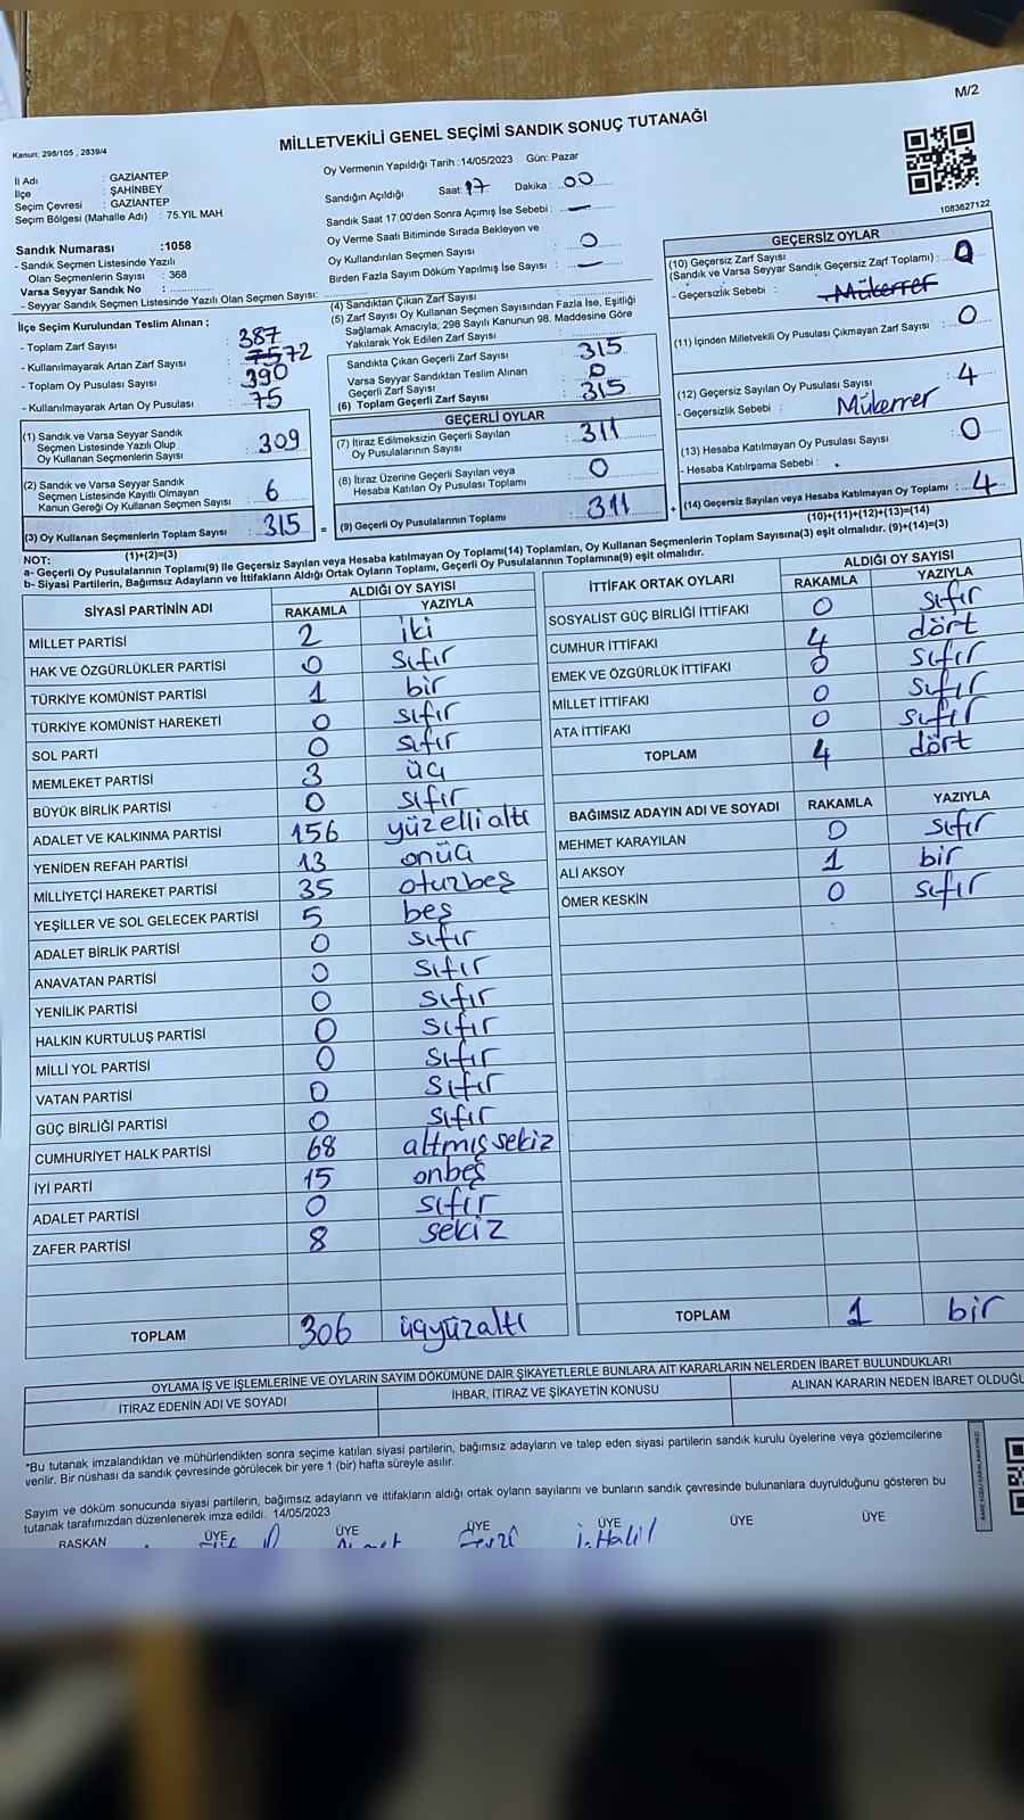 M/2
MİLLETVEKİLİ GENEL SEÇİMİ SANDIK SONUÇ TUTANAĞI
Kanun: 298/105 , 2839/4
İl Adı : GAZİANTEP
İlçe : ŞAHİNBEY
Seçim Çevresi : GAZİANTEP
Seçim Bölgesi (Mahalle Adı) : 75.YIL MAH
Sandık Numarası :1058
- Sandık Seçmen Listesinde Yazılı
Olan Seçmenlerin Sayısı : 368
Varsa Seyyar Sandık No :
- Seyyar Sandık Seçmen Listesinde Yazılı Olan Seçmen Sayısı:
Oy Vermenin Yapıldığı Tarih :14/05/2023 Gün: Pazar
Sandığın Açıldığı Saat: 17 Dakika : 00
Sandık Saat 17.00'den Sonra Açımış İse Sebebi : —
Oy Verme Saati Bitiminde Sırada Bekleyen ve
Oy Kullandırılan Seçmen Sayısı : 0
Birden Fazla Sayım Döküm Yapılmış İse Sayısı : —
1083627122
İlçe Seçim Kurulundan Teslim Alınan ;
- Toplam Zarf Sayısı : 387
- Kullanılmayarak Artan Zarf Sayısı : 72
- Toplam Oy Pusulası Sayısı : 390
- Kullanılmayarak Artan Oy Pusulası : 75
(1) Sandık ve Varsa Seyyar Sandık
Seçmen Listesinde Yazılı Olup
Oy Kullanan Seçmenlerin Sayısı : 309
(2) Sandık ve Varsa Seyyar Sandık
Seçmen Listesinde Kayıtlı Olmayan
Kanun Gereği Oy Kullanan Seçmen Sayısı : 6
(3) Oy Kullanan Seçmenlerin Toplam Sayısı : 315
(1)+(2)=(3)
(4) Sandıktan Çıkan Zarf Sayısı
(5) Zarf Sayısı Oy Kullanan Seçmen Sayısından Fazla İse, Eşitliği
Sağlamak Amacıyla, 298 Sayılı Kanunun 98. Maddesine Göre
Yakılarak Yok Edilen Zarf Sayısı
Sandıkta Çıkan Geçerli Zarf Sayısı : 315
Varsa Seyyar Sandıktan Teslim Alınan
Geçerli Zarf Sayısı : 0
(6) Toplam Geçerli Zarf Sayısı : 315
GEÇERLİ OYLAR
(7) İtiraz Edilmeksizin Geçerli Sayılan
Oy Pusulalarının Sayısı : 311
(8) İtiraz Üzerine Geçerli Sayılan veya
Hesaba Katılan Oy Pusulası Toplamı : 0
= (9) Geçerli Oy Pusulalarının Toplamı : 311
GEÇERSİZ OYLAR
(10) Geçersiz Zarf Sayısı
(Sandık ve Varsa Seyyar Sandık Geçersiz Zarf Toplamı) : 0
- Geçersizlik Sebebi : Mükerrer
(11) İçinden Milletvekili Oy Pusulası Çıkmayan Zarf Sayısı : 0
(12) Geçersiz Sayılan Oy Pusulası Sayısı : 4
- Geçersizlik Sebebi : Mükerrer
(13) Hesaba Katılmayan Oy Pusulası Sayısı : 0
- Hesaba Katılmama Sebebi :
+ (14) Geçersiz Sayılan veya Hesaba Katılmayan Oy Toplamı : 4
(10)+(11)+(12)+(13)=(14)
NOT:
a- Geçerli Oy Pusulalarının Toplamı(9) ile Geçersiz Sayılan veya Hesaba katılmayan Oy Toplamı(14) Toplamları, Oy Kullanan Seçmenlerin Toplam Sayısına(3) eşit olmalıdır. (9)+(14)=(3)
b- Siyasi Partilerin, Bağımsız Adayların ve İttifakların Aldığı Ortak Oyların Toplamı, Geçerli Oy Pusulalarının Toplamına(9) eşit olmalıdır.
SİYASİ PARTİNİN ADI ALDIĞI OY SAYISI
RAKAMLA YAZIYLA
MİLLET PARTİSİ 2 iki
HAK VE ÖZGÜRLÜKLER PARTİSİ 0 sıfır
TÜRKİYE KOMÜNİST PARTİSİ 1 bir
TÜRKİYE KOMÜNİST HAREKETİ 0 sıfır
SOL PARTİ 0 sıfır
MEMLEKET PARTİSİ 3 üç
BÜYÜK BİRLİK PARTİSİ 0 sıfır
ADALET VE KALKINMA PARTİSİ 156 yüzellialtı
YENİDEN REFAH PARTİSİ 13 onüç
MİLLİYETÇİ HAREKET PARTİSİ 35 otuzbeş
YEŞİLLER VE SOL GELECEK PARTİSİ 5 beş
ADALET BİRLİK PARTİSİ 0 sıfır
ANAVATAN PARTİSİ 0 sıfır
YENİLİK PARTİSİ 0 sıfır
HALKIN KURTULUŞ PARTİSİ 0 sıfır
MİLLİ YOL PARTİSİ 0 sıfır
VATAN PARTİSİ 0 sıfır
GÜÇ BİRLİĞİ PARTİSİ 0 sıfır
CUMHURİYET HALK PARTİSİ 68 altmış sekiz
İYİ PARTİ 15 onbeş
ADALET PARTİSİ 0 sıfır
ZAFER PARTİSİ 8 sekiz
TOPLAM 306 üçyüzaltı
İTTİFAK ORTAK OYLARI ALDIĞI OY SAYISI
RAKAMLA YAZIYLA
SOSYALİST GÜÇ BİRLİĞİ İTTİFAKI 0 sıfır
CUMHUR İTTİFAKI 4 dört
EMEK VE ÖZGÜRLÜK İTTİFAKI 0 sıfır
MİLLET İTTİFAKI 0 sıfır
ATA İTTİFAKI 0 sıfır
TOPLAM 4 dört
BAĞIMSIZ ADAYIN ADI VE SOYADI RAKAMLA YAZIYLA
MEHMET KARAYILAN 0 sıfır
ALİ AKSOY 1 bir
ÖMER KESKİN 0 sıfır
TOPLAM 1 bir
OYLAMA İŞ VE İŞLEMLERİNE VE OYLARIN SAYIM DÖKÜMÜNE DAİR ŞİKAYETLERLE BUNLARA AİT KARARLARIN NELERDEN İBARET BULUNDUKLARI
İTİRAZ EDENİN ADI VE SOYADI İHBAR, İTİRAZ VE ŞİKAYETİN KONUSU ALINAN KARARIN NEDEN İBARET OLDUĞU
*Bu tutanak imzalandıktan ve mühürlendikten sonra seçime katılan siyasi partilerin, bağımsız adayların ve talep eden siyasi partilerin sandık kurulu üyelerine veya gözlemcilerine
verilir. Bir nüshası da sandık çevresinde görülecek bir yere 1 (bir) hafta süreyle asılır.
Sayım ve döküm sonucunda siyasi partilerin, bağımsız adayların ve ittifakların aldığı ortak oyların sayılarını ve bunların sandık çevresinde bulunanlara duyrulduğunu gösteren bu
tutanak tarafımızdan düzenlenerek imza edildi. 14/05/2023
BAŞKAN ÜYE ÜYE ÜYE ÜYE ÜYE ÜYE
İ. Halil